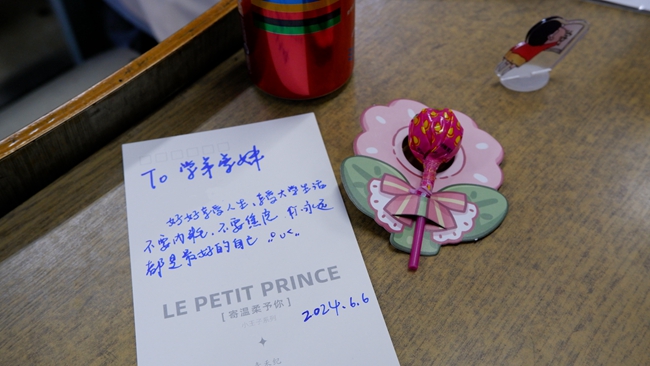 To 学弟学妹
好好享受人生,享受大学生活
不要内耗,不要焦虑 你永远
都是最好的自己
LE PETIT PRINCE
[ 寄温柔予你 ]
2024.6.6